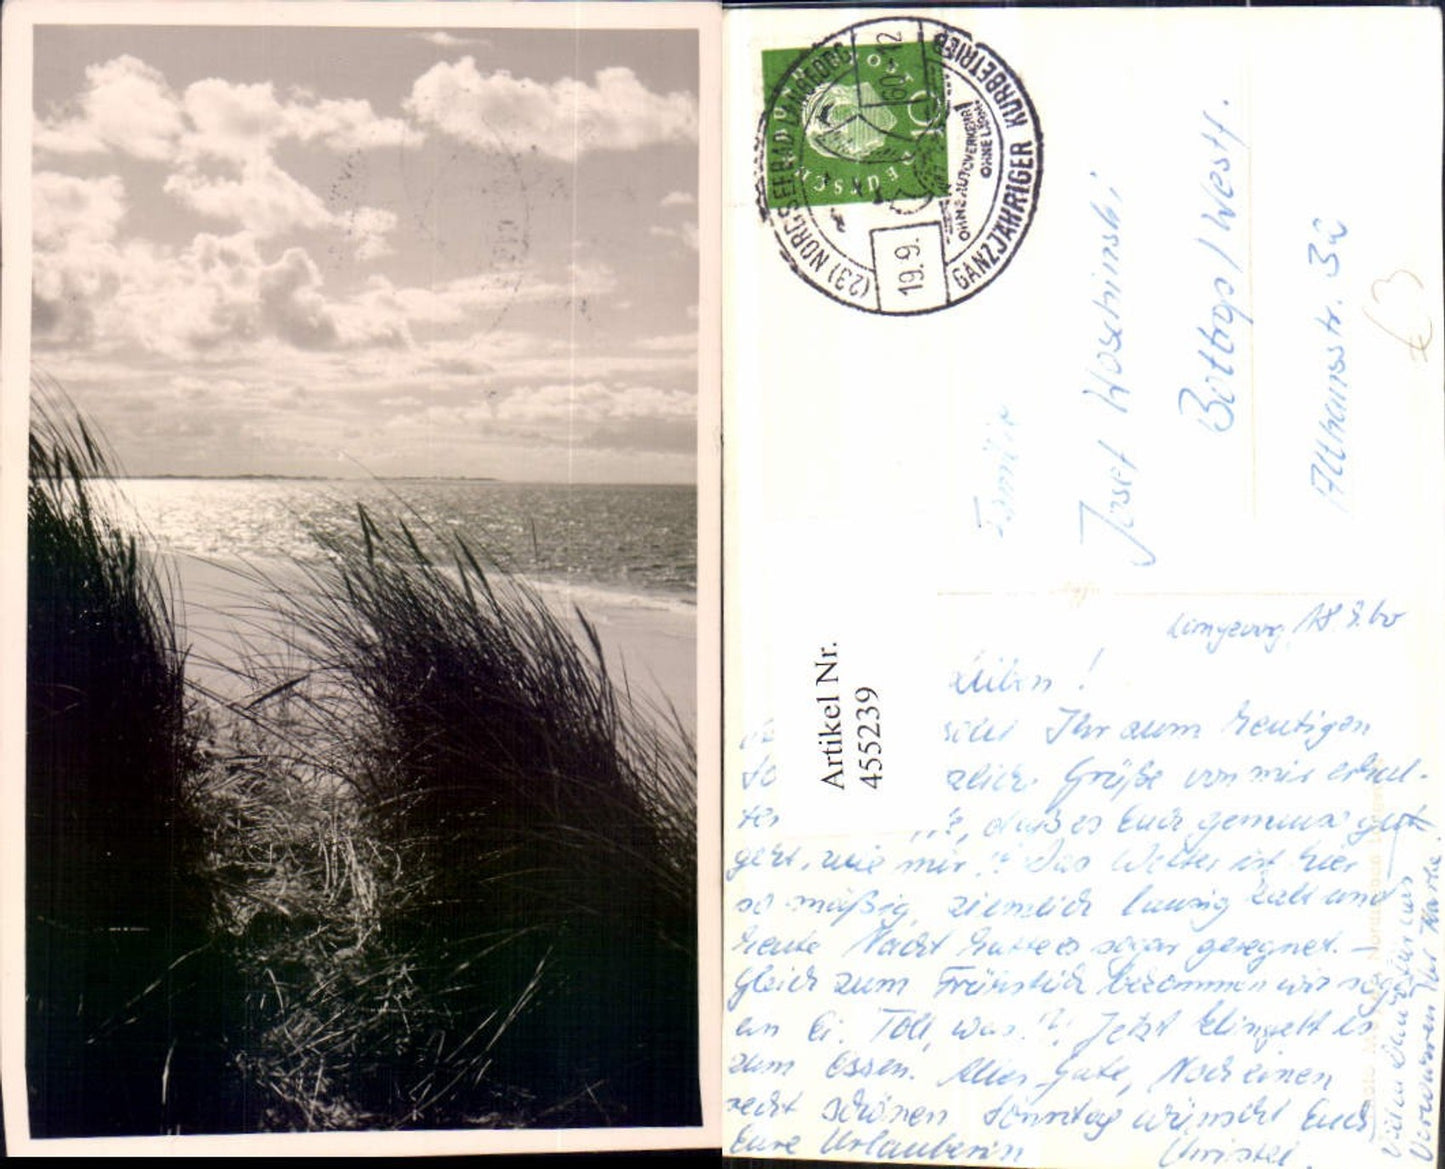 (23) NORDSEEBAD LANGEOOG
GANZJÄHRIGER KURBETRIEB
OHNE AUTOVERKEHR
OHNE LÄRM
19.9.
60-12
10
Familie
Josef
Bottrop / Westf.
Althausstr. 32
Artikel Nr.
455239
Langeoog, 18.9.60
Lieben!
Ihr zum heutigen
Grüße von mir erhal-
ten daß es Euch genauso gut
geht, wie mir?! Das Wetter ist hier
so mäßig, ziemlich launig kalt und
heute Nacht hatte es sogar geregnet. -
Gleich zum Frühstück bekommen wir sogar
ein Ei. Toll, was?! Jetzt klingelt es
zum Essen. Alles Gute, Noch einen
recht schönen Sonntag wünscht Euch
Eure Urlauberin Christel.
Vielen Dank für